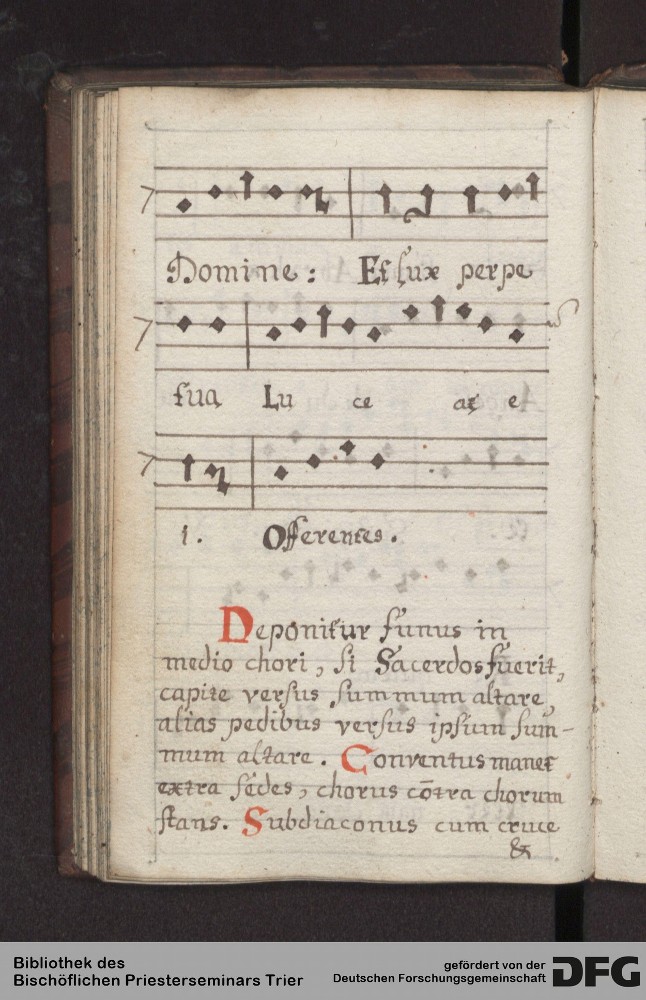 Domine: Et lux perpe
tua Lu ce at e
i. Offerentes.
Deponitur funus in
medio chori, si Sacerdos fuerit,
capite versus summum altare,
alias pedibus versus ipsum sum-
mum altare. Conventus manet
extra sedes, chorus cõtra chorum
stans. Subdiaconus cum cruce
&
Bibliothek des
Bischöflichen Priesterseminars Trier
gefördert von der
Deutschen Forschungsgemeinschaft
DFG